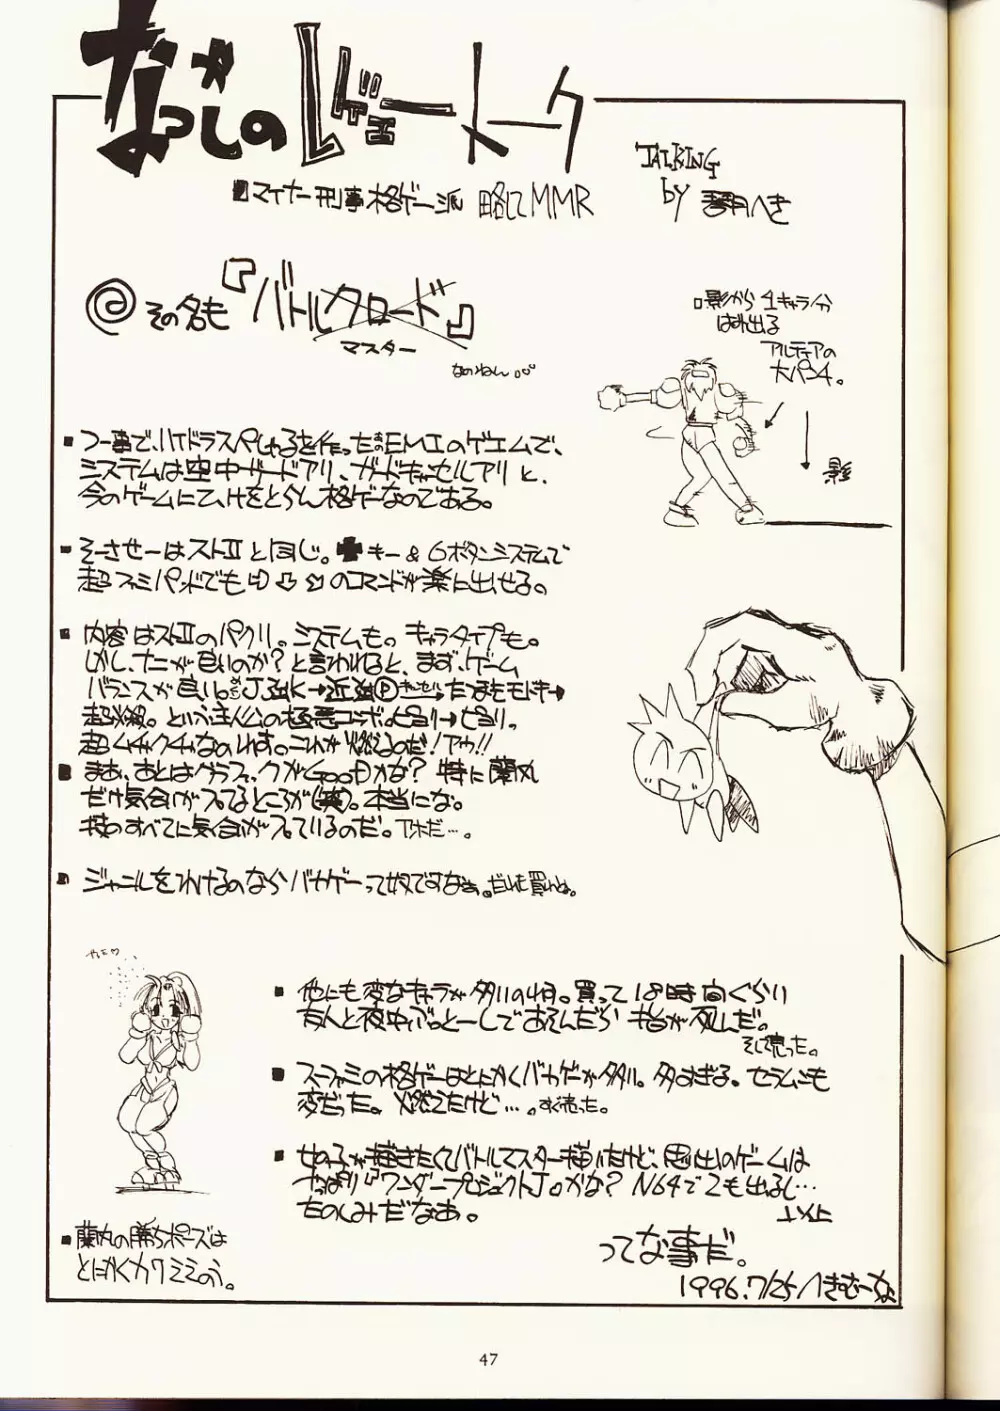 なつかしのレヴューートーク
■マイナー刑事格ゲー派 略してMMR
TALKING
by 琴月へき
@その名も『バトルクロード』
マスター
なのねん…
□影から1キャラ分
はみ出る
アルティアの
大パンチ。
影
つー事で、ハイドラスペしゃるを作ったEMIのゲエムで、
システムは空中ガードアリ、ガードキャンセルアリと、
今のゲームにひけをとらん格ゲーなのである。
そーさせーはストIIと同じ。✚キー&6ボタンシステムで
超ファミパッドでも⇨⇩⬂のコマンドが楽に出せる。
内容はストIIのパクリ。システムも。キャラタイプも。
しかし、ナニが良いのか?と言われると、まず、ゲーム
バランスが良い。J強K→近強Ⓟキャンセル→たつまきモドキ→
超必殺。という主人公の極悪コンボ。ピヨリ→ピヨリ。
超ムチャクチャなのれす。これが燃えるのだ!アウ!!
まあ、あとはグラフィックがGOODかな?特に蘭丸
だけ気合いが入ってるところが(笑)。本当にな。
技のすべてに気合が入っているのだ。アホだ…。
ジャンルをわけるのならバカゲーって奴ですなぁ。
他にも変なキャラが多いのね。買って18時間ぐらい
友人と夜中ぶっとーしであそんだら本台が死んだ。
そして売った。
スーファミの格ゲーはとにかくバカゲーが多い。多すぎる。セラムンも
変だった。燃えたけど…。すぐ売った。
女の子が描きたくてバトルマスター描いたけど、思い出のゲームは
やっぱり『ワンダープロジェクトJ』かな?N64で2も出るし…
たのしみだなあ。
以上
蘭丸の勝ちポーズは
とにかくカワミミのう。
ってな事だ。
1996.7/25 へきむーな
47